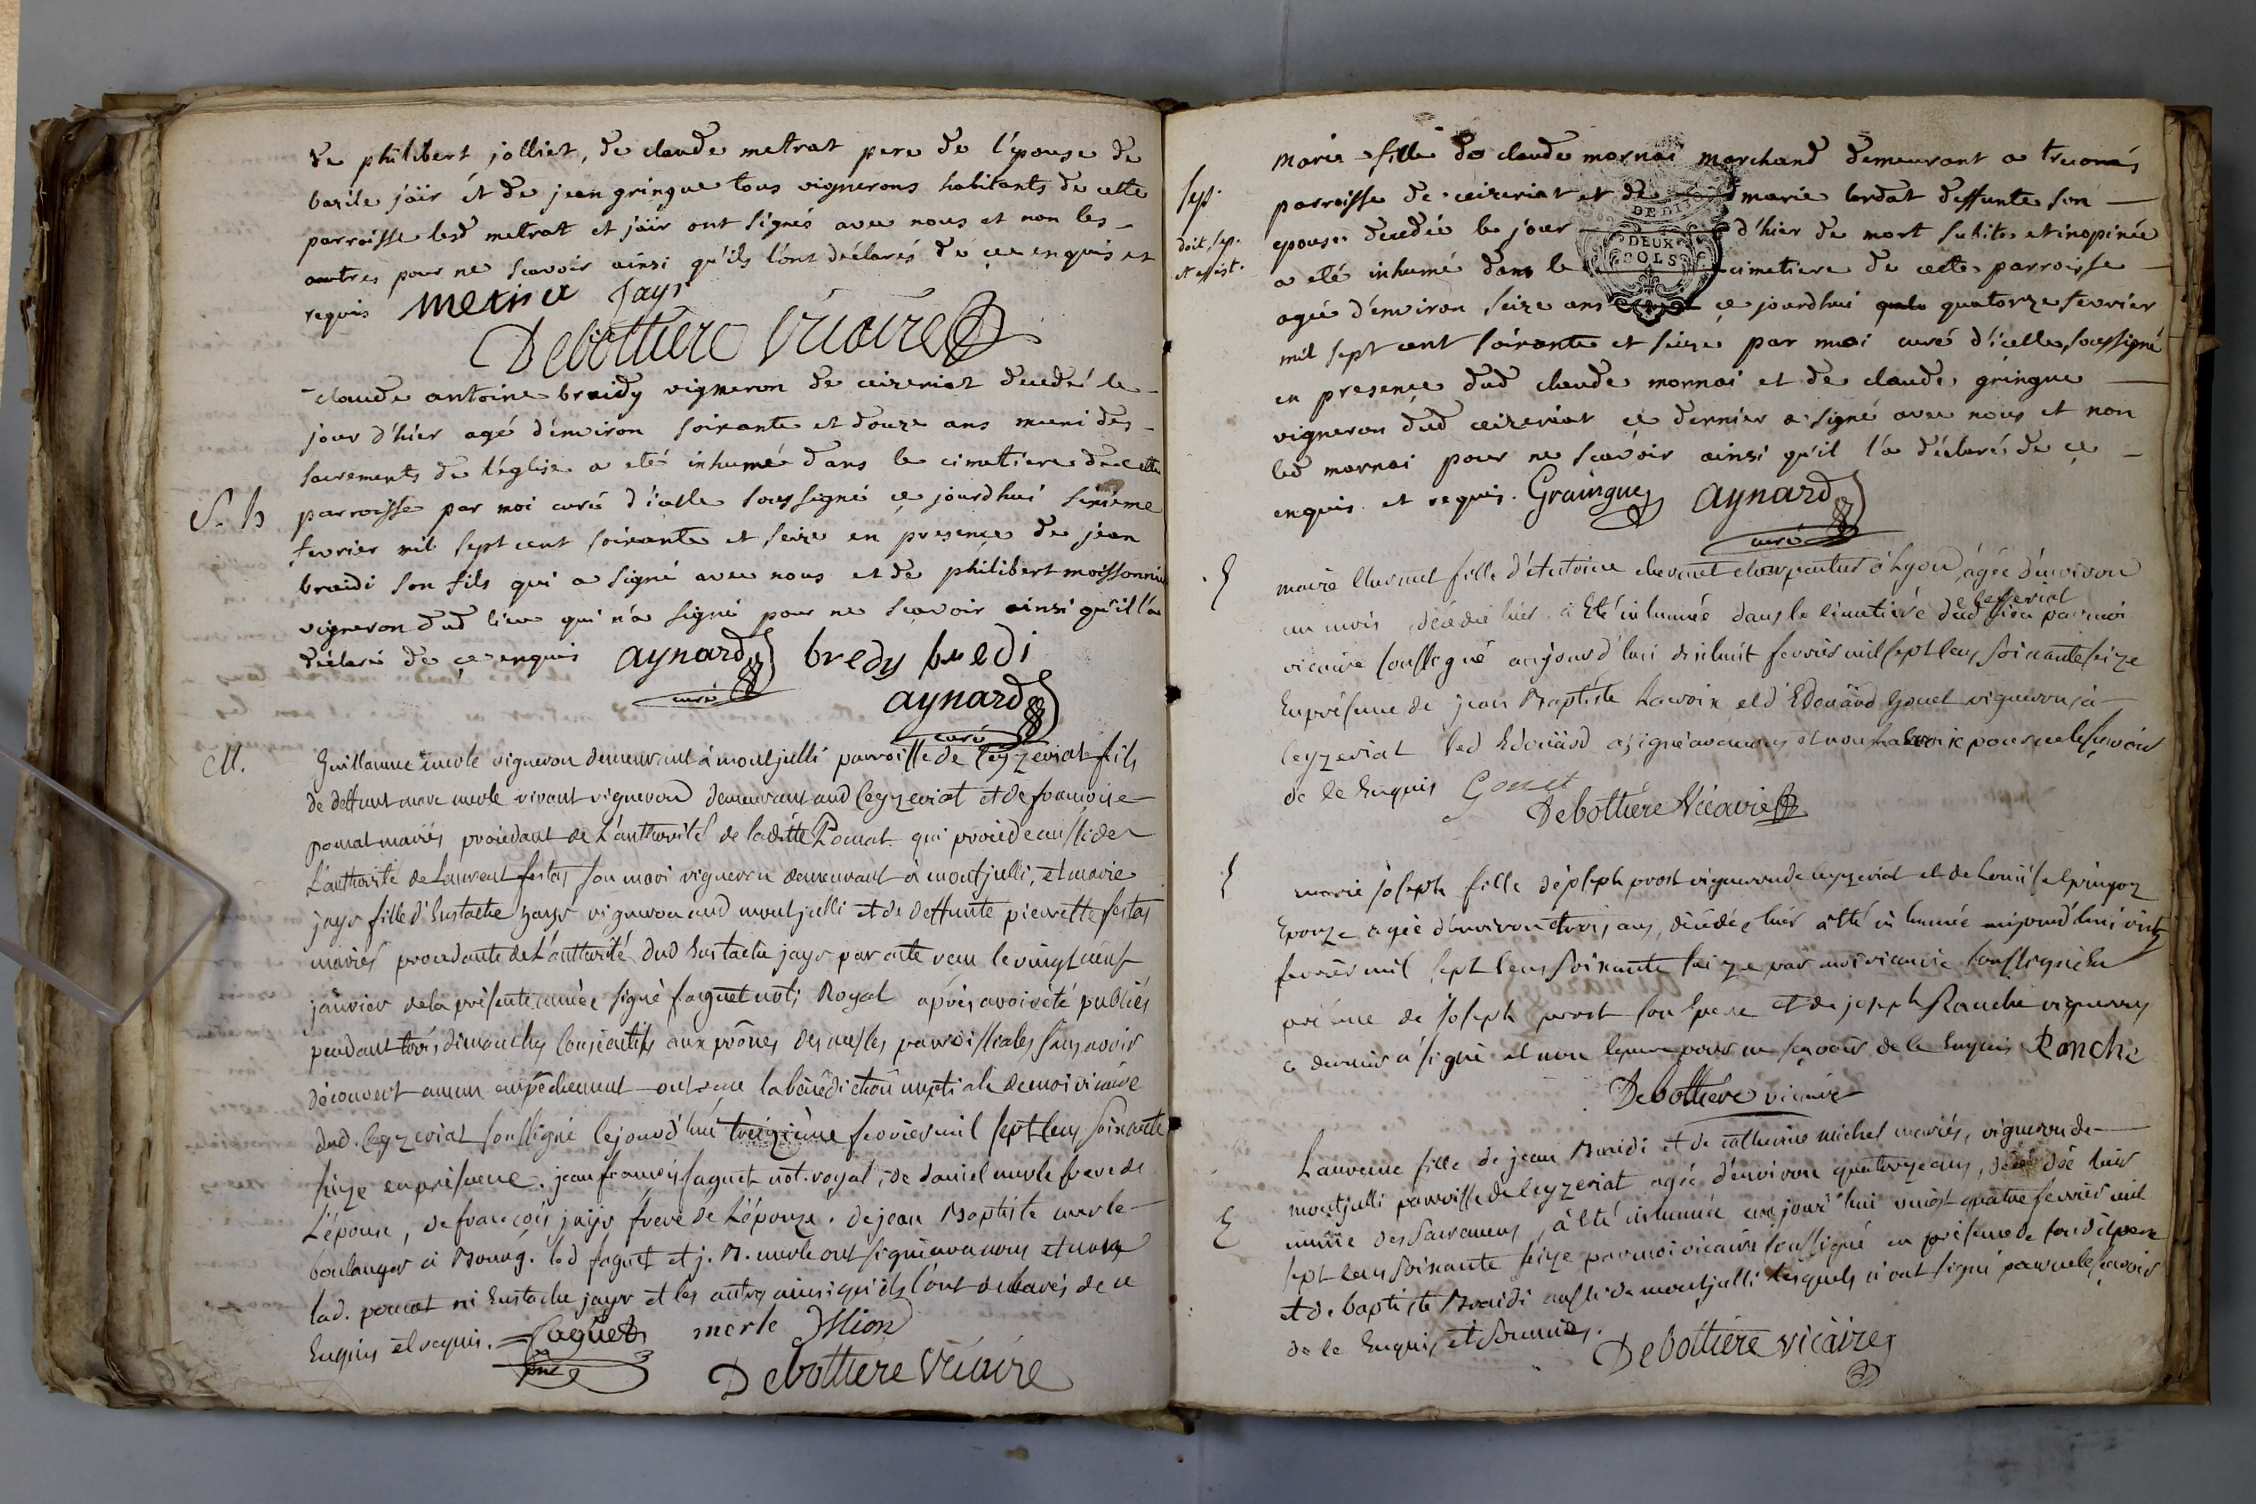 de philibert jolliet, de claude metrat pere de l'épouse de
basile jäir ét de jean gringue tous vignerons habitants de cette
parroisse lesd metrat et jäir ont signés avec nous et non les
autres pour ne scavoir ainsi qu'ils l'ont déclarés de ce enquis et
requis Jayr
Debottiere Vicaire
claude antoine braidy vigneron de ceizeriat decedé le
jour d'hiér agé d'environ soixante et douze ans muni des
sacrements de l'église a eté inhumé dans le cimetiere de cette
S. h parroisse par moi curé d'icelle soussigné ce jourdhui
fevrier mil sept cent soixante et seize en presence de jean
braidi son fils qui a signé avec nous et de philibert moissonnier
vigneron dud lieu qui n'a signé pour ne scavoir ainsi qu'il l'a
déclaré de ce enquis aynard curé bredy bredi
aynard curé
M. Guillaume merle vigneron demeurant à montjulli parroisse de Ceyzeriat fils
de deffunt marc merle vivant vigneron demeurant aud Ceyzeriat et de francoise
pomat mariés procedant de L'authorité de laditte Pomat qui procede aussi de
L'authorité de Laurent festas son mari vigneron demeurant à montjulli, et marie
jayr fille d'Eustache jayr vigneron aud montjulli et de deffunte pierrette festas
mariés procedante de L'authorité dud Eustache jayr par acte recu le vingt neuf
janvier de la présente année signé faguet not. Royal après avoir été publiés
pendant trois dimanches consécutifs aux prônes des messes parroissiales sans avoir
découvert aucun empêchement ont recu la bénédiction nuptiale de moi vicaire
dud. Ceyzeriat soussigné cejourd'hui treizième fevrier mil sept cens soixante
seize en présence. jean francois faguet not. royal, de daniel merle frere de
L'épouse, de francois jayr frere de L'épouze. de jean Baptiste merle
boulanger à Bourg. led faguet et j. B. merle ont signé avec nous et non
lad. pomat ni Eustache jayr et les autres ainsi qu'ils l'ont déclarés de ce
Enquis et requis. faguet merle
Debottiere Vicaire
marie fille de claude mornai marchand demeurant a
Sep. parroisse de ceizeriat et de marie bordat deffunte son
doit. sep. epouse decedée le jour d'hier de mort subite et inopinée
et assist. a eté inhumé dans le cimetiere de cette parroisse
DE DIJON
DEUX
SOLS
agée d'environ seize ans ce jourdhui quatorze fevrier
mil sept cent soixante et seize par moi curé d'icelle soussigné
en presence dud claude mornai et de claude gringue
vigneron dud ceizeriat ce dernier a signé avec nous et non
led mornai pour ne scavoir ainsi qu'il l'a déclaré de ce
enquis et requis. Graingue aynard curé
marie fille d'Antoine charpentier à Lyon, agée d'environ
un mois, décédée hier, a été inhumée dans le cimetiere dud Ceyzeriat par moi
vicaire soussigné aujourd'hui dixhuit fevrier mil sept cens soixante seize
En présence de jean Baptiste Lacroix et d'Edouard Gonet vignerons à
Ceyzeriat led Edouärd a signé avec nous et non Lacroix pour ne le scavoir
de ce Enquis Gonet
Debottiere Vicaire
marie joseph fille de joseph prost vigneron de ceyzeriat et de Louise
Epouze agée d'environ trois ans, décédée hier a été inhumée aujourd'hui vint
fevrier mil sept cens soixante seize par moi vicaire soussigné En
présence de joseph prost son pere et de joseph Ranche vignerons
ce dernier a signé et non le pere pour ne scavoir de ce Enquis Ranche
Debottiere vicaire
Laurence fille de jean Braidi et de catherine michel mariés, vigneron de
montjulli parroisse de Ceyzeriat agée d'environ quatorze ans, décédée hier
munie des Sacremens, a été inhumée aujourd'hui vingt quatre fevrier mil
sept cens soixante seize par moi vicaire soussigné en présence de son dit pere
et de baptiste Braidi aussi de montjulli lesquels n'ont signé pour ne le scavoir
de ce Enquis et sommés.
Debottiere vicaire